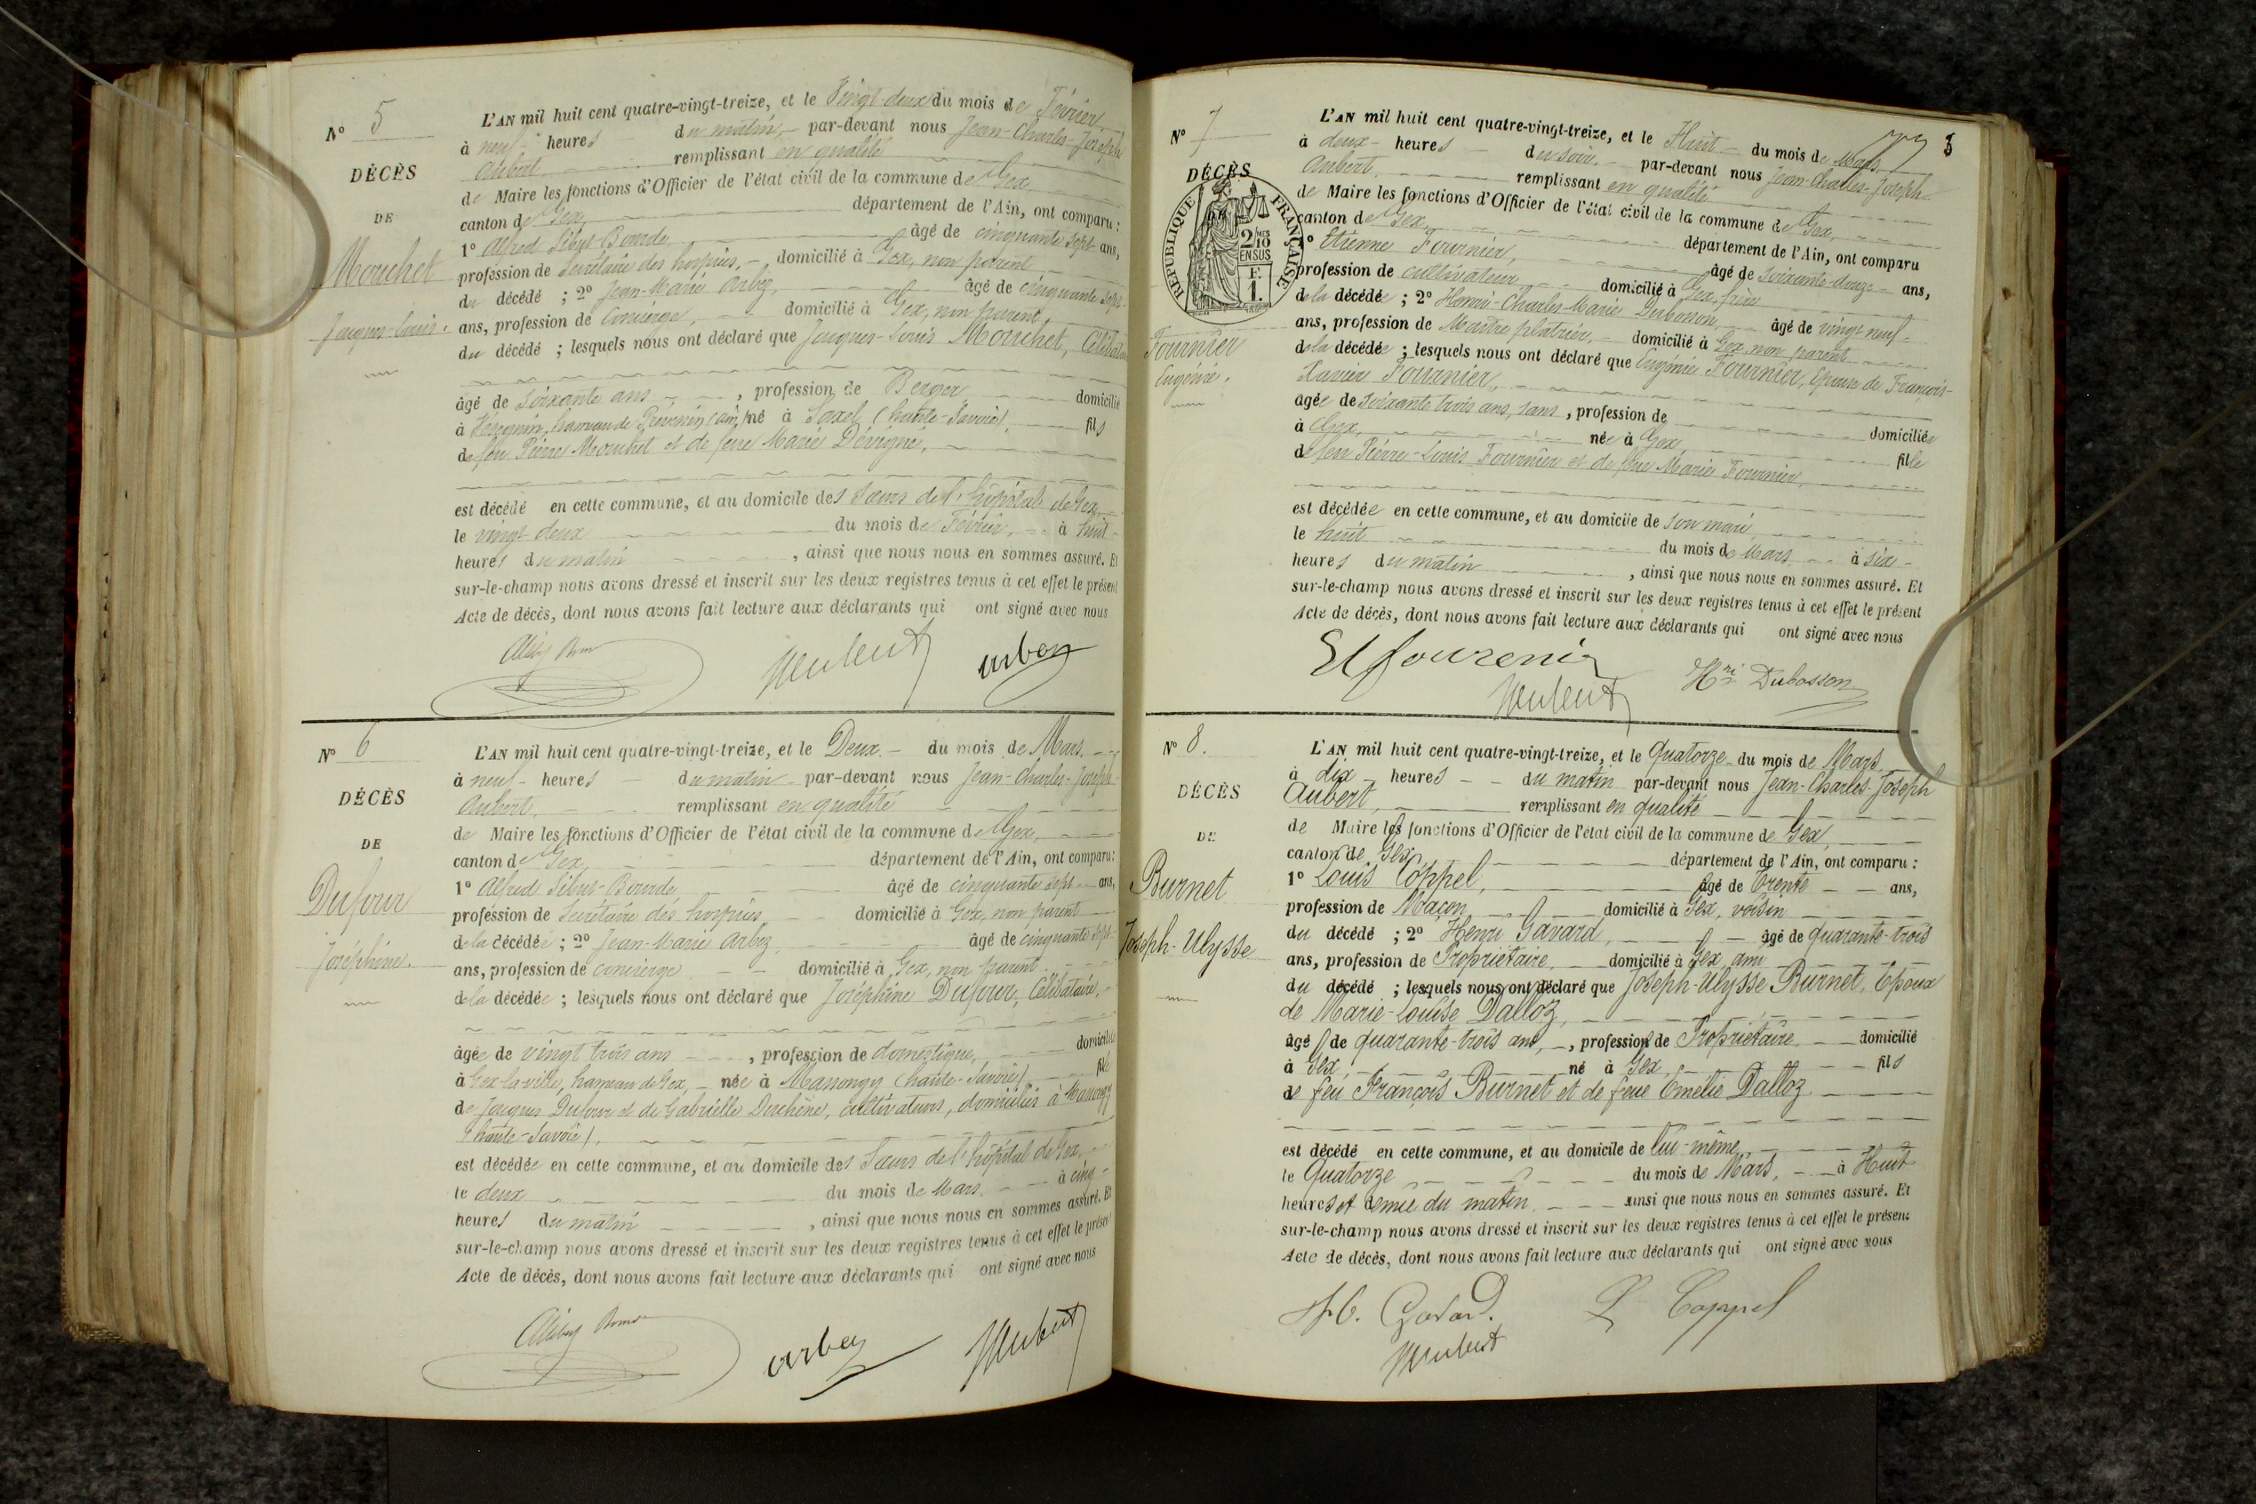 N° 5
DÉCÈS
DE
Mouchet
Jacques-Louis.
L'AN mil huit cent quatre-vingt-treize, et le Vingt-deux du mois de Février
à neuf heures du matin par-devant nous Jean-Charles-Joseph
Aubert remplissant en qualité
de Maire les fonctions d'Officier de l'état civil de la commune de Gex
canton de Gex département de l'Ain, ont comparu :
1° Alfred Sibuet-Bourde âgé de cinquante sept ans,
profession de Secrétaire des hospices, domicilié à Gex, non parent
du décédé ; 2° Jean-Marie Arbez, âgé de cinquante sept
ans, profession de Concierge, domicilié à Gex, non parent
du décédé ; lesquels nous ont déclaré que Jacques-Louis Mouchet, Célibataire
âgé de soixante ans, profession de Berger domicilié
à hameau de né à Saxel (Haute-Savoie) fils
de feu Pierre Mouchet et de feue Marie
est décédé en cette commune, et au domicile des Sœurs de l'hôpital de Gex
le vingt deux du mois de Février, à huit
heures du matin, ainsi que nous nous en sommes assuré. Et
sur-le-champ nous avons dressé et inscrit sur les deux registres tenus à cet effet le présent
Acte de décès, dont nous avons fait lecture aux déclarants qui ont signé avec nous
Aubert Arbez
N° 6
DÉCÈS
DE
Dufour
Joséphine.
L'AN mil huit cent quatre-vingt-treize, et le Deux du mois de Mars
à neuf heures du matin par-devant nous Jean-Charles-Joseph
Aubert, remplissant en qualité
de Maire les fonctions d'Officier de l'état civil de la commune de Gex,
canton de Gex département de l'Ain, ont comparu :
1° Alfred Sibuet-Bourde âgé de cinquante sept ans,
profession de Secrétaire des hospices domicilié à Gex, non parent
de la décédée ; 2° Jean-Marie Arbez, âgé de cinquante sept
ans, profession de concierge domicilié à Gex, non parent
de la décédée ; lesquels nous ont déclaré que Joséphine Dufour, Célibataire,
âgée de vingt trois ans, profession de domestique, domiciliée
à Gex-la-ville, hameau de Gex, née à Massongy (haute-Savoie) fille
de Jacques Dufour et de Gabrielle Duchêne, cultivateurs, domiciliés à Massongy
(haute-Savoie),
est décédée en cette commune, et au domicile des Sœurs de l'hôpital de Gex,
le deux du mois de Mars à cinq
heures du matin, ainsi que nous nous en sommes assuré. Et
sur-le-champ nous avons dressé et inscrit sur les deux registres tenus à cet effet le présent
Acte de décès, dont nous avons fait lecture aux déclarants qui ont signé avec nous
Arbez Aubert
N° 7
DÉCÈS
RÉPUBLIQUE FRANÇAISE
2/10 MES
EN SUS
F.
1.
Fournier
Eugénie.
L'AN mil huit cent quatre-vingt-treize, et le Huit du mois de Mars
à deux heures du soir par-devant nous Jean-Charles-Joseph
Aubert, remplissant en qualité
de Maire les fonctions d'Officier de l'état civil de la commune de Gex,
canton de Gex, département de l'Ain, ont comparu
1° Etienne Fournier, âgé de soixante-douze ans,
profession de cultivateur, domicilié à Gex, frère
de la décédée ; 2° Henri-Charles-Marie Dubosson, âgé de vingt neuf
ans, profession de Maître plâtrier, domicilié à Gex, non parent
de la décédée ; lesquels nous ont déclaré que Eugénie Fournier, Epouse de François-
Xavier Fournier,
âgée de soixante trois ans, sans, profession de domiciliée
à Gex, née à Gex, fille
de feu Pierre-Louis Fournier et de feue Marie Fournier,
est décédée en cette commune, et au domicile de son mari
le huit du mois de Mars à six
heures du matin, ainsi que nous nous en sommes assuré. Et
sur-le-champ nous avons dressé et inscrit sur les deux registres tenus à cet effet le présent
Acte de décès, dont nous avons fait lecture aux déclarants qui ont signé avec nous
Et fourenir Aubert Hri Dubosson
N° 8.
DÉCÈS
DE
Burnet
Joseph-Ulysse
L'AN mil huit cent quatre-vingt-treize, et le Quatorze du mois de Mars
à dix heures du matin par-devant nous Jean-Charles-Joseph
Aubert, remplissant en qualité
de Maire les fonctions d'Officier de l'état civil de la commune de Gex,
canton de Gex, département de l'Ain, ont comparu :
1° Louis Coppel, âgé de Trente ans,
profession de Maçon domicilié à Gex, voisin
du décédé ; 2° Henri Gavard, âgé de quarante-trois
ans, profession de Propriétaire, domicilié à Gex, ami
du décédé ; lesquels nous ont déclaré que Joseph-Ulysse Burnet, Epoux
de Marie-Louise Dalloz,
âgé de quarante-trois ans, profession de Propriétaire domicilié
à Gex, né à Gex, fils
de feu François Burnet et de feue Emélie Dalloz
est décédé en cette commune, et au domicile de lui-même,
le Quatorze du mois de Mars, à Huit
heures et demie du matin ainsi que nous nous en sommes assuré. Et
sur-le-champ nous avons dressé et inscrit sur les deux registres tenus à cet effet le présent
Acte de décès, dont nous avons fait lecture aux déclarants qui ont signé avec nous
H. Gavard. L Coppel
Aubert